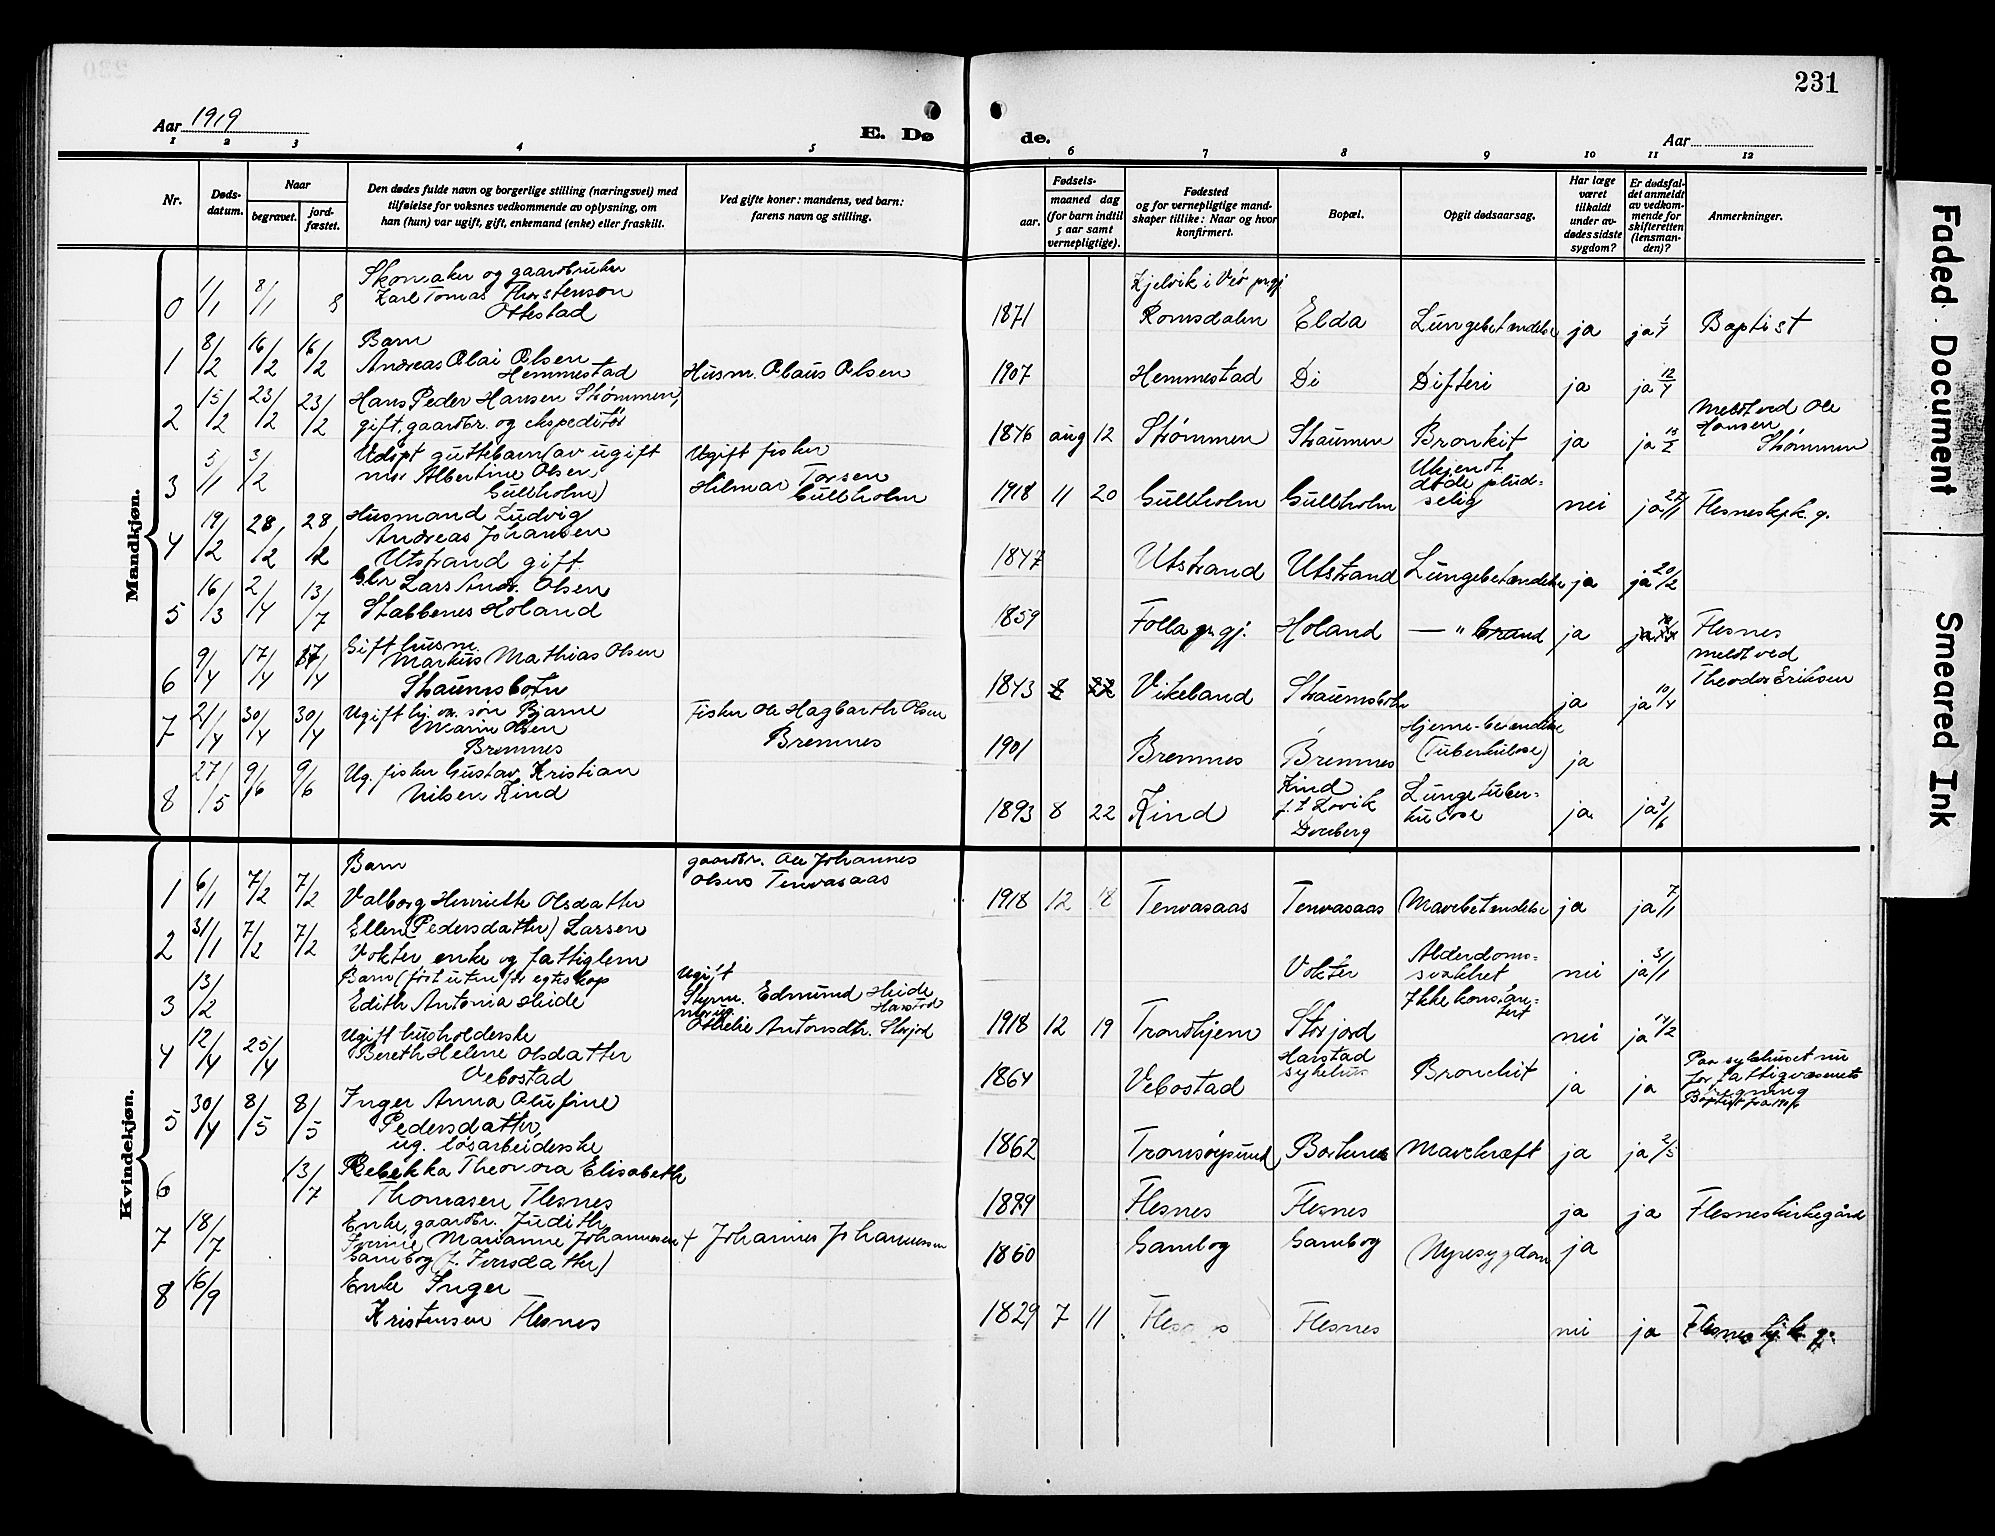 231
Aar 1919
E. Dø
de.
Aar
1 2 3 4 5 6 7 8 9 10 11 12
Nr.
Døds-
datum.
Naar
begravet.
jord-
fæstet.
Den dødes fulde navn og borgerlige stilling (næringsvei) med
tilføielse for voksnes vedkommende av oplysning, om
han (hun) var ugift, gift, enkemand (enke) eller fraskilt.
Ved gifte koner: mandens, ved barn:
farens navn og stilling.
Fødsels-
aar.
maaned dag
(for barn indtil
5 aar samt
vernepligtige).
Fødested
og for vernepligtige mand-
skaper tillike: Naar og hvor
konfirmert.
Bopæl.
Opgit dødsaarsag.
Har læge
været
tilkaldt
under av-
dødes sidste
sygdom?
Er dødsfal-
det anmeldt
av vedkom-
mende for
skifteretten
(lensman-
den)?
Anmerkninger.
Mandkjøn.
0 1/1 8/1 8 Skomaker og gaardbruker
Karl Tomas Thorstenson
Ottestad
1871 Kjelvik i Veø prgj
Romsdalen Elda Lungebetændelse ja ja Baptist
1 8/2 16/2 16/2 Barn
Andreas Olai Olsen
Hemmestad Husm. Olaus Olsen 1907 Hemmestad Do Difteri ja ja
2 15/2 23/2 23/2 Hans Peder Hansen Strømmen,
gift, gaardbr. og ekspeditør
1846 aug 12 Strømmen Straumen Bronkit ja ja Meldt ved Ole
Hansen
Strømmen
3 5/1 3/2 Udøpt guttebarn (av ugift
Albertine Olsen,
Gullholm) Ugift fisker
Hilmar Torsen
Gullholm 1918 11 20 Gullholm Gullholm Ukjendt
døde plud-
selig nei ja Flesnes k.g.
4 19/2 28/2 28/2 Husmand Ludvig
Andreas Johansen
Utstrand gift
1847 Utstrand Utstrand Lungebetændelse ja ja 20/2
5 16/3 2/4 13/7 Gbr Lars Andr. Olsen
Stabbenes Holand
1859 Folla prgj. Holand — " brand ja ja Flesnes
6 9/4 17/4 17/4 Gift husm.
Markus Mathias Olsen
Straumsbotn
1843 8 22 Vikeland Straumsbotn ja ja 10/4 meldt ved
Theodor Eriksen
7 21/4 30/4 30/4 Ugift hj. v. søn Bjarne
Marin Olsen
Bremnes Fisker Ole Hagbarth Olsen
Bremnes 1901 Bremnes Bremnes Hjerne-betændelse
(Tuberkulose) ja
8 27/5 9/6 9/6 Ug. fisker Gustav Kristian
Nilsen Kind
1893 8 22 Kind Kind
f. t. Lovik
Dverberg Lungetuber-
kulose ja ja 3/6
Kvindekjøn.
1 6/1 7/2 7/2 Barn
Valborg Henriette Olsdatter gaardbr. Ole Johannes
Olsens Tenvasaas 1918 12 18 Tenvasaas Tenvasaas Mavebetændelse ja ja 7/1
2 31/1 7/2 7/2 Ellen (Pedersdatter) Larsen
Vokter enke og fattiglem
Vokter Alderdoms-
svakhet nei ja 3/1
3 13/2 Barn (født utenfor egteskap
Edith Antonia Heide Ugift
Styrm. Edmund Heide
Harstad
Othelie Antonsdtr. Storjord 1918 12 19 Trondhjem Storjord Ikke konstan-
tert nei ja 14/2
4 12/4 25/4 Ugift husholderske
Bereth Helene Olsdatter
Vebostad
1864 Vebostad Harstad
sykehus Bronchit ja ja Paa sykehuset nu
for fattigvæsenets
regning
Baptist fra
5 30/4 8/5 8/5 Inger Anna Olufine
Pedersdatter,
ug. løsarbeiderske
1862 Tromsøysund Borkenes Mavekræft ja ja 2/5
6 13/7 Rebekka Theodora Elisabeth
Thomasen Flesnes
1899 Flesnes Flesnes ja ja Flesnes kirkegård
7 18/7 Enke, gaardbr. Judith
Iverine Marianne Johannesen
Sambog (f. Iversdatter) + Johannes Johannessen
1860 Sambog Sambog Nyresygdom ja
8 16/9 Enke Inger
Kristensen Flesnes
1829 7 11 Flesnes Flesnes nei ja Flesnes k. g.
Faded Document
Smeared Ink